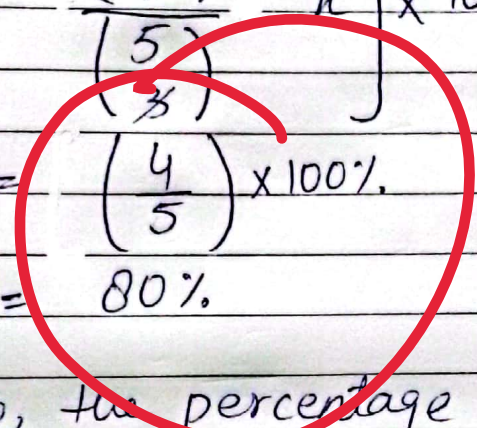 (5/x)] x
= (4/5) x 100%.
= 80%.
, the percentage